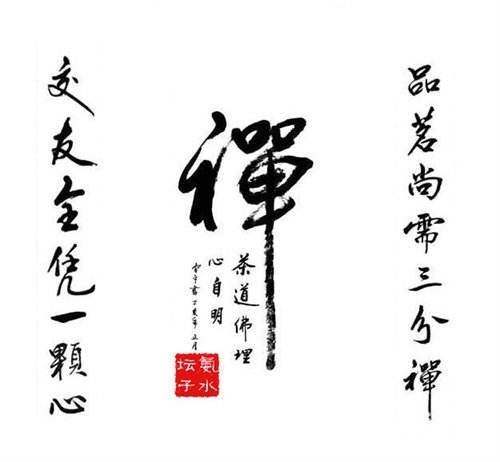 品茗尚需三分禪
禪
茶道佛理
心自明
丁亥年
氨水
坛子
交友全凭一顆心